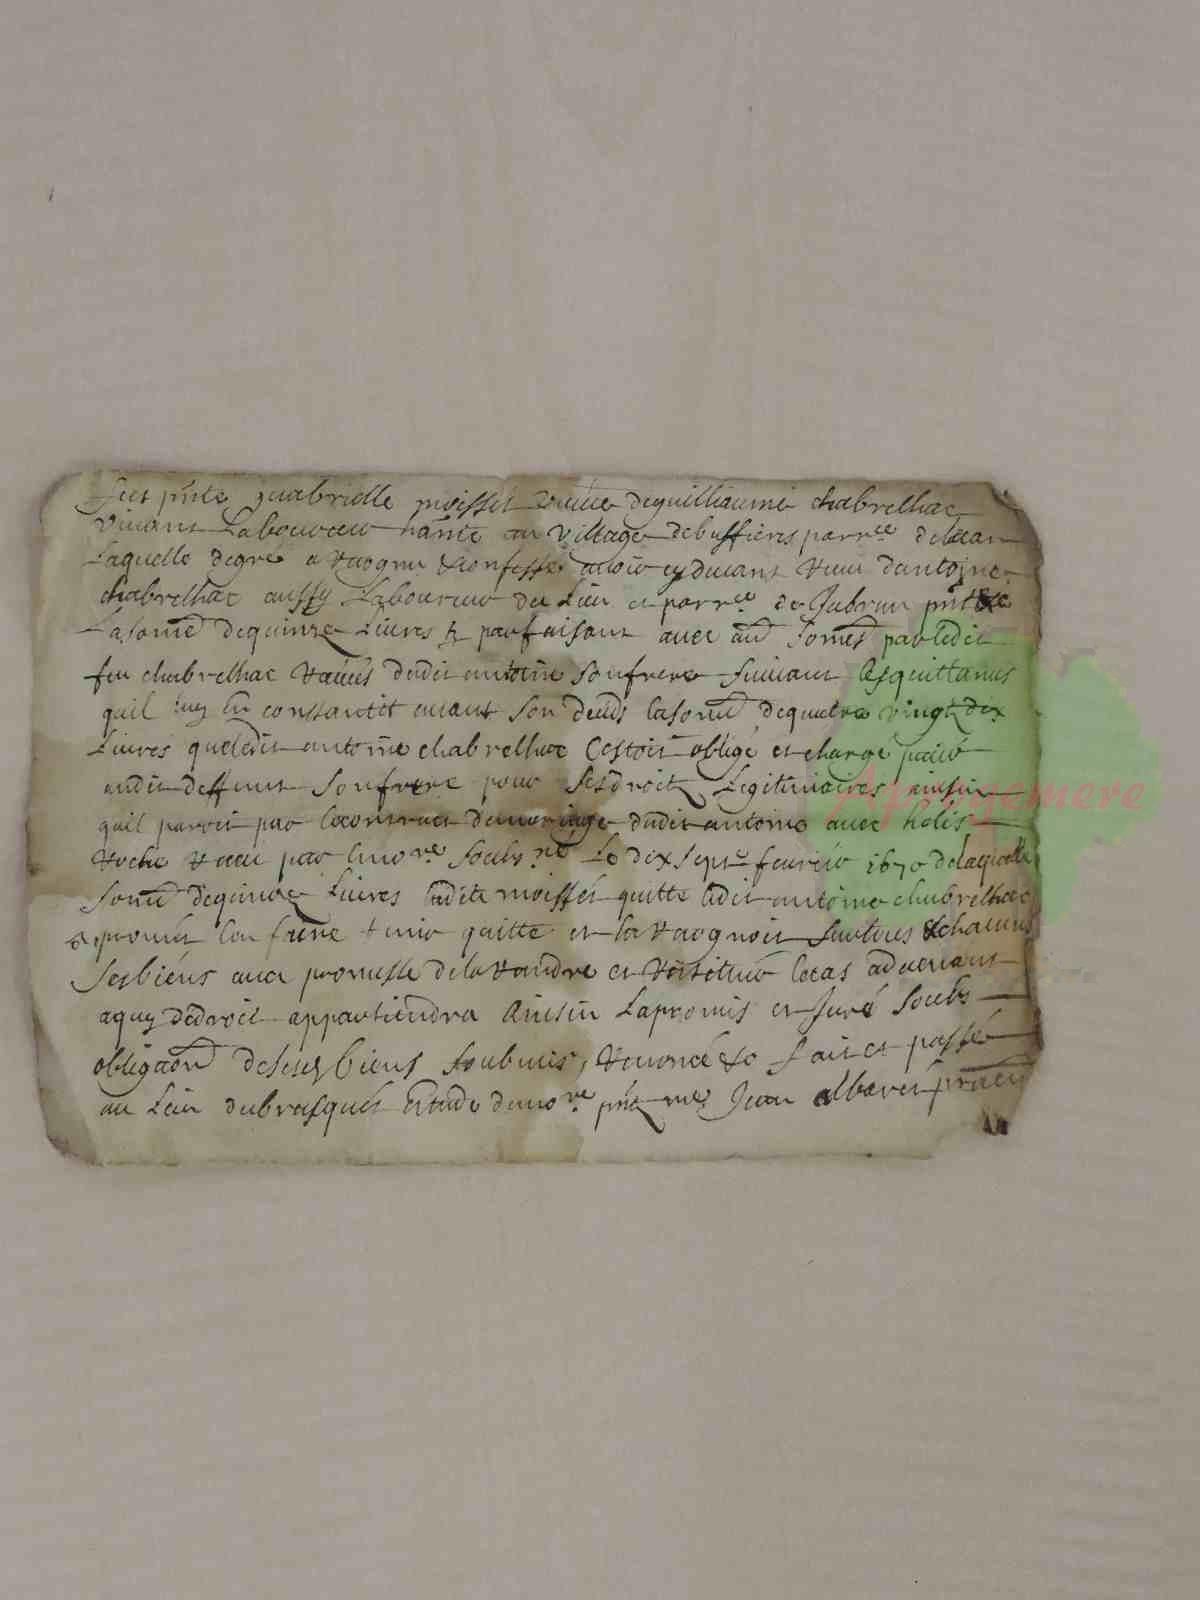 feut pnte gnabrielle moisset veufve de guilliaume chabrelhac
vivant Laboureur hante au village de bussieres parr.ce de
Laquelle de gre a recognu & confesse avoir cy devant receu dantoine
chabrelhac aussy Laboureur du Lieu et parr.ce de Jabrun pnt &c
La some de quinze Livres & parfaisant avec au. somes par ledit
feu chabrelhac receues dudit antoine son frere suivant les quittances
quil luy en constantit avant son deces la some de quatre vingt dix
Livres que ledit antoine chabrelhac cestoit obligé et chargé paier
audit deffunt son frere pour ses droitz Legitimaires ainsin
quil paroit par le contract de mariage dudit antoine avec helis
receu par le no.re soubs.ne Le dix sept feurier 1670 de laquelle
some de quinze Livres ladite moisset quitte ledit antoine chabrelhac
& promet len faire tenir quitte et la recognoit sur tous & chacuns
ses biens avec promesse de la randre et restituer le cas advenant
a quy de droit appartiendra Ainsin La promis et Juré soubs
obliga.on de ses biens soubmis, renoncé &c fait et passé
au Lieu du brasques Estude de no.re pnt me. Jean albaret praen
Apogemere